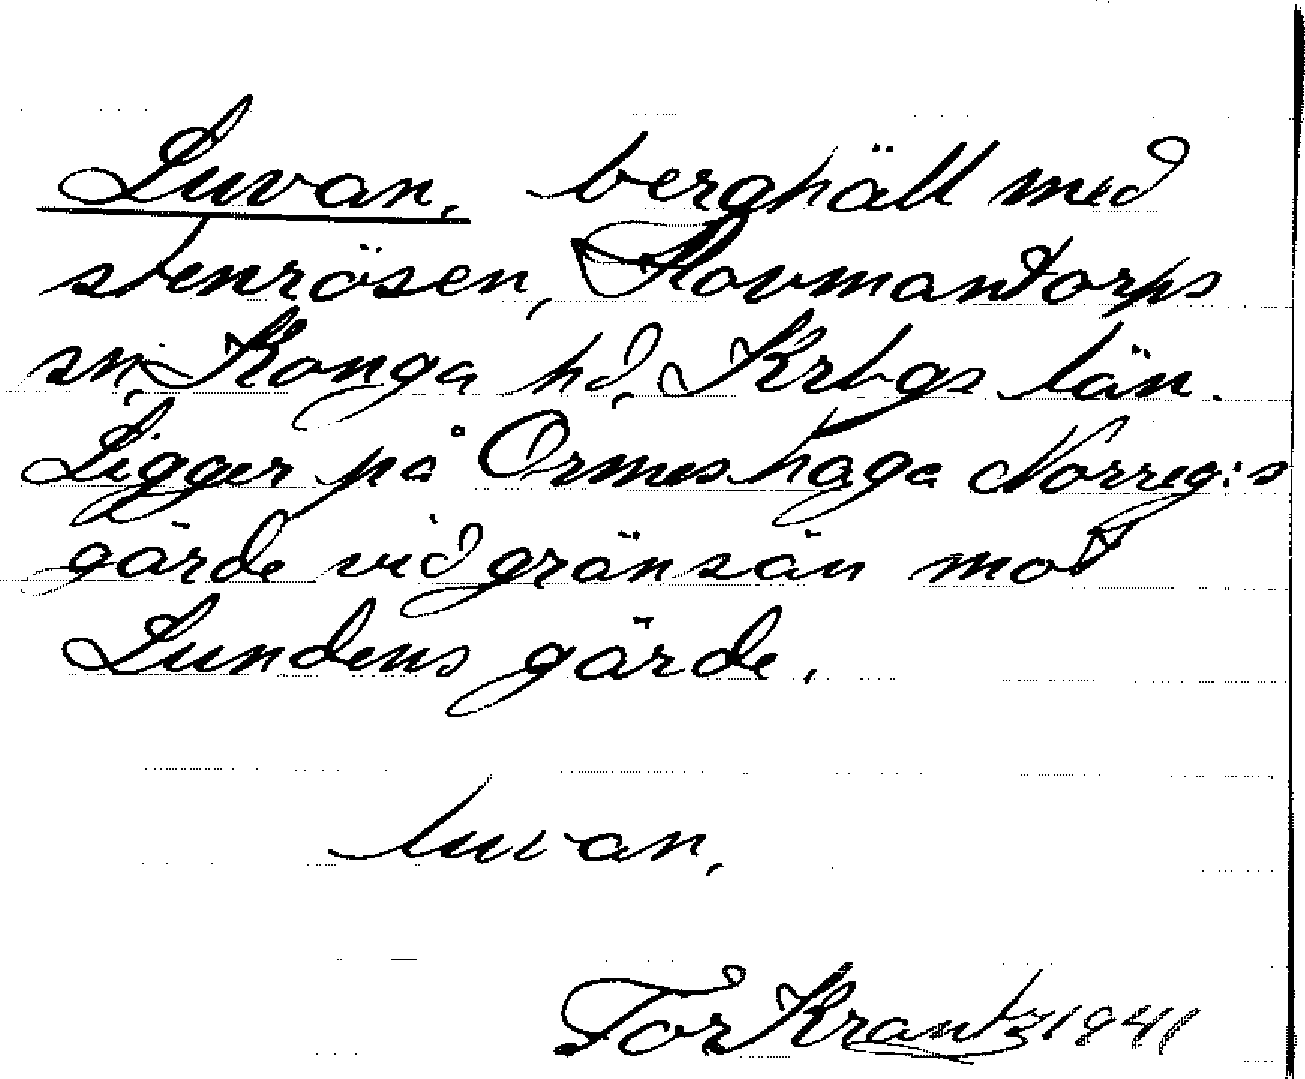 Luvan, berghäll med
stenrösen, Hovmantorps
sn, Konga hd, Krbgs län.
Ligger på Ormeshaga Norreg:s
gärde vid gränsän mot
Lundens gärde.
luvan,
Tor Krantz 1941